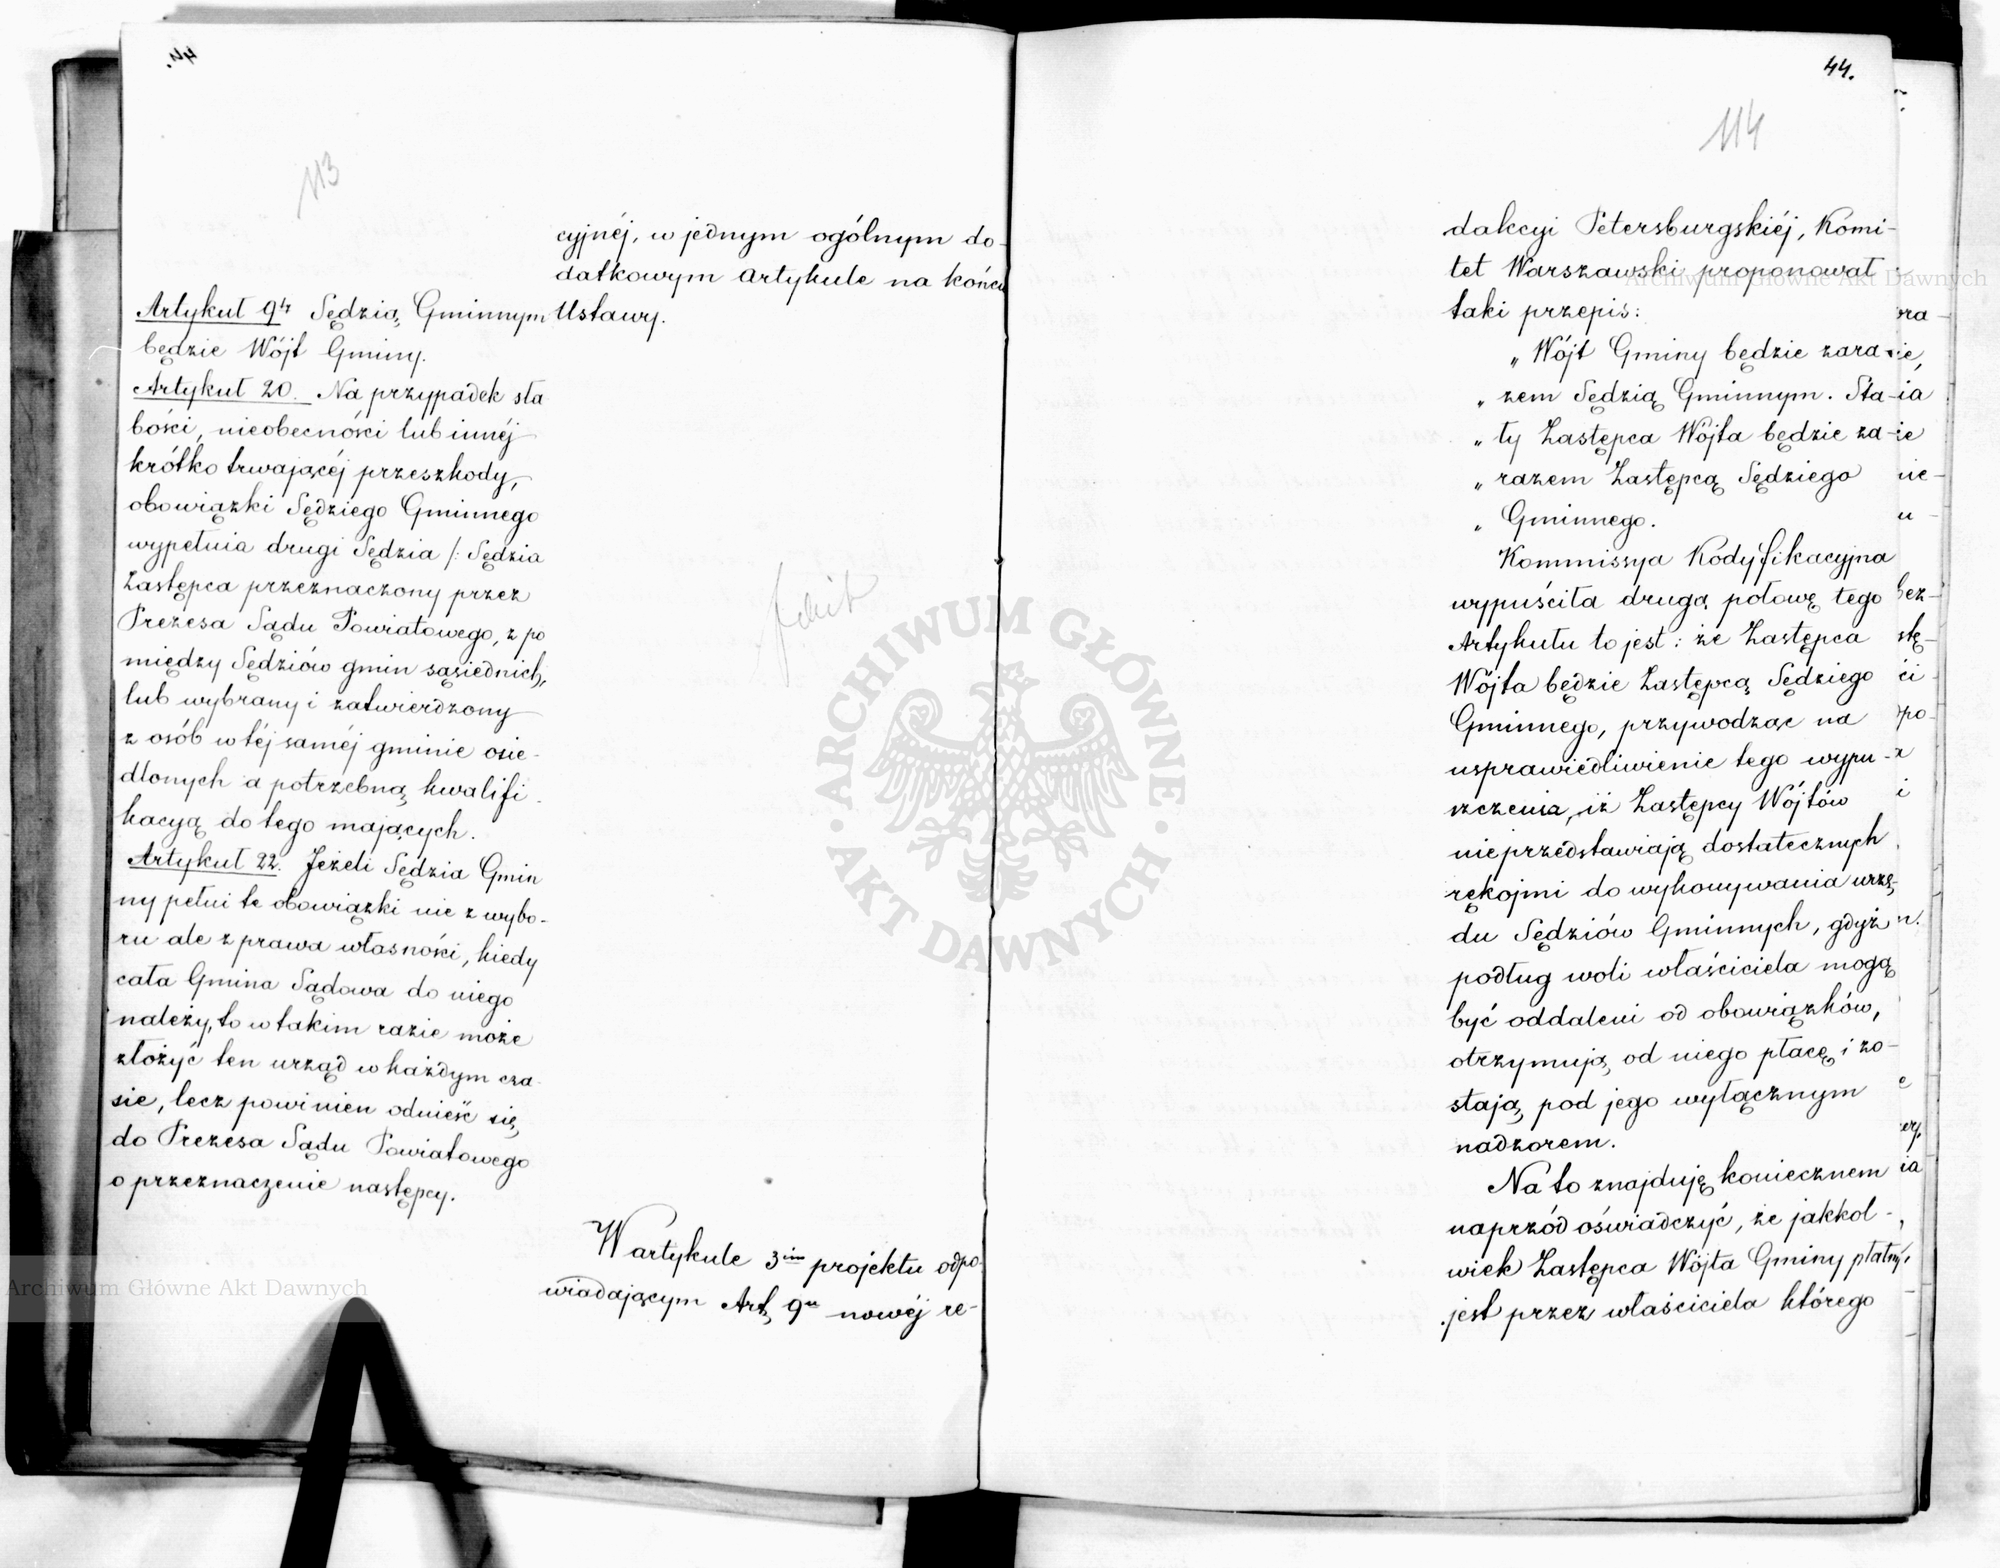 44.
113
Artykuł 9ty Sędzią Gminnym
będzie Wójt Gminy.
Artykuł 20. Na przypadek sła
bości, nieobecności lub innéj
krótko trwającéj przeszkody,
obowiązki Sędziego Gminnego
wypełnia drugi Sędzia /: Sędzia
Zastępca przeznaczony przez
Prezesa Sądu Powiatowego, z po
między Sędziów gmin sąsiednich,
lub wybrany i zatwierdzony
z osób w téj saméj gminie osie-
dlonych a potrzebną kwalifi-
kacyą do tego mających.
Artykuł 22. Jeżeli Sędzia Gmin
ny pełni te obowiązki nie z wybo-
ru ale z prawa własności, kiedy
cała Gmina Sądowa do niego
należy, to w takim razie może
złożyć ten urząd w każdym cza-
sie, lecz powinien odnieść się,
do Prezesa Sądu Powiatowego
o przeznaczenie następcy.
cyjnéj, w jednym ogólnym do-
datkowym artykule na końcu
Ustawy.
W artykule 3im projektu odpo-
wiadającym Art. 9u nowéj re-
44.
114
dakcyi Petersburgskiéj, Komi-
tet Warszawski proponował
taki przepis:
„ Wójt Gminy będzie zara-
„ zem Sędzią Gminnym. Sta-
„ ły Zastępca Wójta będzie za-
„ razem Zastępcą Sędziego
„ Gminnego.
Kommissya Kodyfikacyjna
wypuściła drugą połowę tego
Artykułu to jest: że Zastępca
Wójta będzie Zastępcą Sędziego
Gminnego, przywodząc na
usprawiedliwienie tego wypu-
szczenia, iż Zastępcy Wójtów
nieprzedstawiają dostatecznych
rękojmi do wykonywania urzę-
du Sędziów Gminnych, gdyż
podług woli właściciela mogą
być oddaleni od obowiązków,
otrzymują, od niego płacę i zo-
stają, pod jego wyłącznym
nadzorem.
Na to znajduję koniecznem
naprzód oświadczyć, że jakkol-
wiek Zastępca Wójta Gminy płatny
jest przez właściciela którego
ARCHIWUM GŁÓWNE
AKT DAWNYCH
Archiwum Główne Akt Dawnych
Archiwum Główne Akt Dawnych